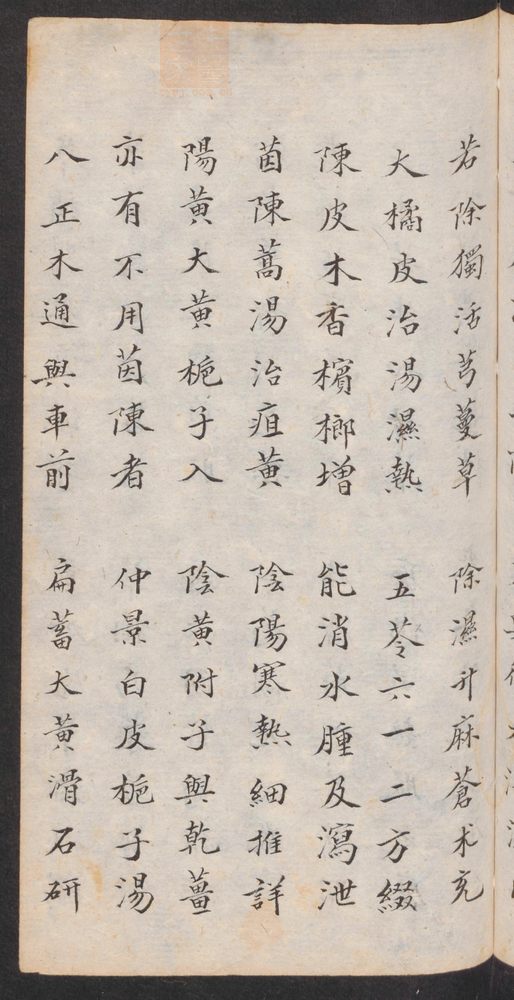 若除獨活芎蔓草　除濕升麻蒼朮充
大橘皮治湯濕熱　五苓六一二方綴
陳皮木香檳榔增　能消水腫及瀉泄
茵陳蒿湯治疸黃　陰陽寒熱細推詳
陽黃大黃梔子入　陰黃附子與乾薑
亦有不用茵陳者　仲景白皮梔子湯
八正木通與車前　扁蓄大黃滑石研